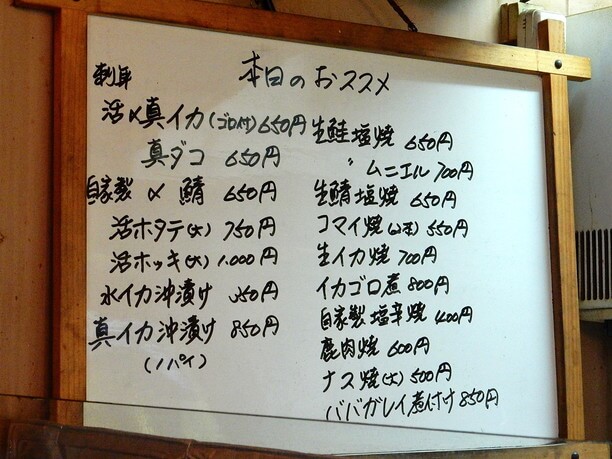 本日のおススメ
刺身
活〆真イカ(ゴロ付) 650円
真ダコ 650円
自家製 〆鯖 650円
活ホタテ(大) 750円
活ホッキ(大) 1,000円
水イカ沖漬け 350円
真イカ沖漬け 850円
(1パイ)
生鮭塩焼 650円
〃 ムニエル 700円
生鯖塩焼 650円
コマイ焼 550円
生イカ焼 700円
イカゴロ煮 800円
自家製塩辛焼 400円
鹿肉焼 600円
ナス焼(大) 500円
ババガレイ煮付け 850円